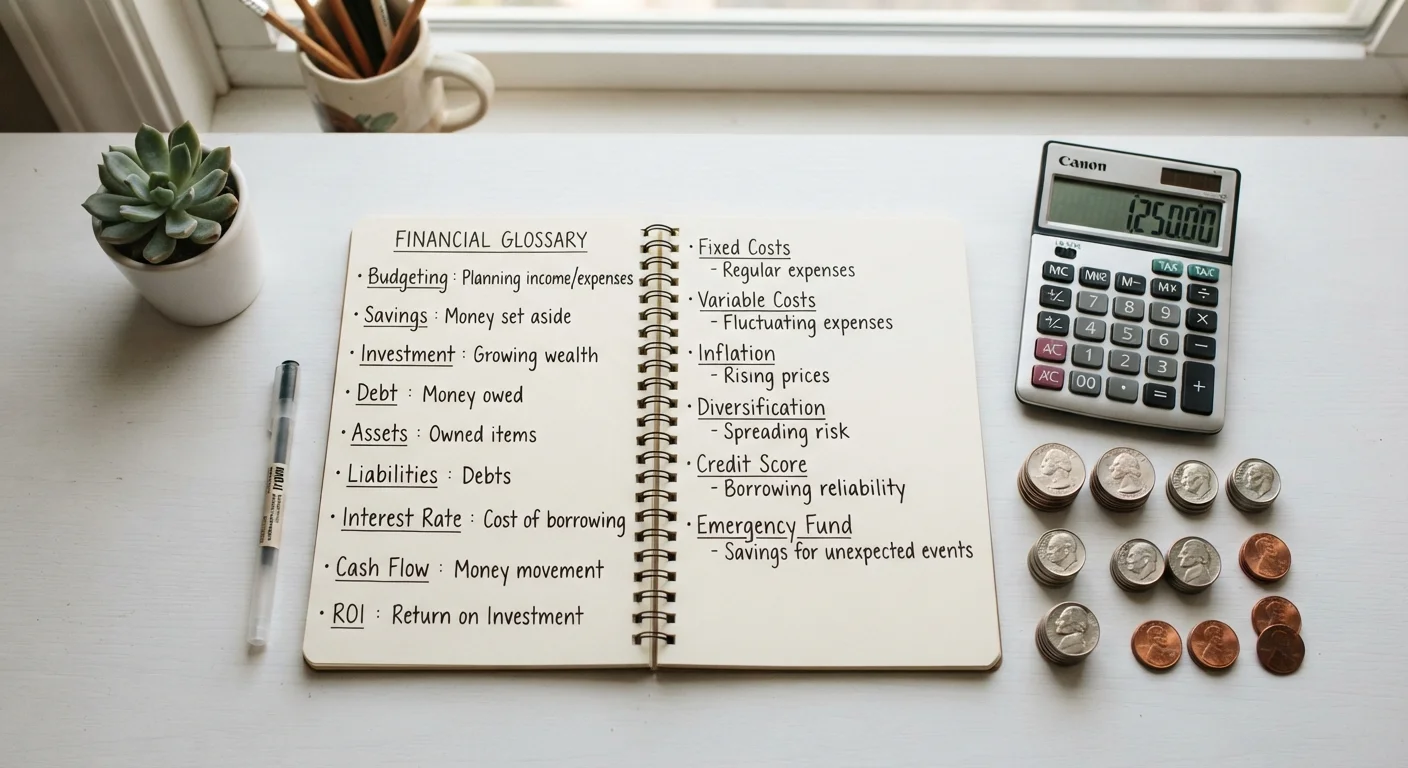 FINANCIAL GLOSSARY
• Budgeting : Planning income/expenses
• Savings : Money set aside
• Investment : Growing wealth
• Debt : Money owed
• Assets : Owned items
• Liabilities : Debts
• Interest Rate : Cost of borrowing
• Cash Flow : Money movement
• ROI : Return on Investment
• Fixed Costs
- Regular expenses
• Variable Costs
- Fluctuating expenses
• Inflation
- Rising prices
• Diversification
- Spreading risk
• Credit Score
- Borrowing reliability
• Emergency Fund
- Savings for unexpected events
Canon
MC M- ÷
7 8 9 ×
4 5 6 −
1 2 3 +
00 . =